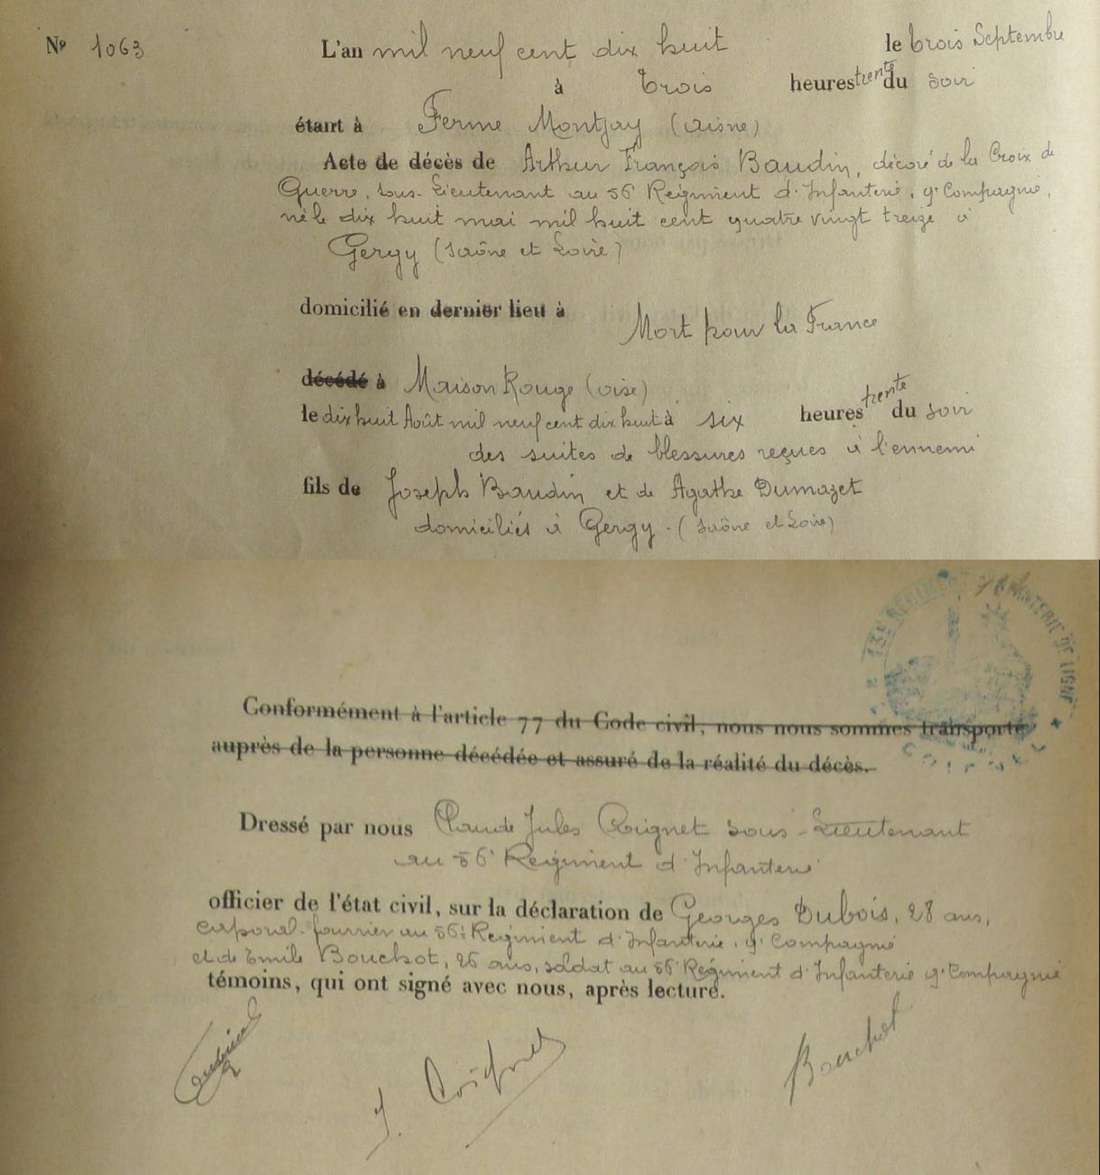 N° 1063
L'an mil neuf cent dix huit le trois Septembre
à trois heures trente du soir
étant à Ferme Montjay (Aisne)
Acte de décès de Arthur François Baudin, décoré de la Croix de
Guerre, sous-Lieutenant au 56e Régiment d'Infanterie, 9e Compagnie,
né le dix huit mai mil huit cent quatre vingt treize à
Gergy (Saône et Loire)
domicilié en dernier lieu à
Mort pour la France
décédé à Maison Rouge (Oise)
le dix huit Août mil neuf cent dix huit à six heures trente du soir
des suites de blessures reçues à l'ennemi
fils de Joseph Baudin et de Agathe Dumazet
domiciliés à Gergy. (Saône et Loire)
Conformément à l'article 77 du Code civil, nous nous sommes transporté
auprès de la personne décédée et assuré de la réalité du décès.
Dressé par nous Claude Jules Coignet sous-Lieutenant
au 56e Régiment d'Infanterie
officier de l'état civil, sur la déclaration de Georges Dubois, 28 ans,
caporal-fourrier au 56e Régiment d'Infanterie, 9e Compagnie
et de Emile Bouchot, 26 ans, soldat au 56e Régiment d'Infanterie 9e Compagnie
témoins, qui ont signé avec nous, après lecture.
J. Coignet
Bouchot